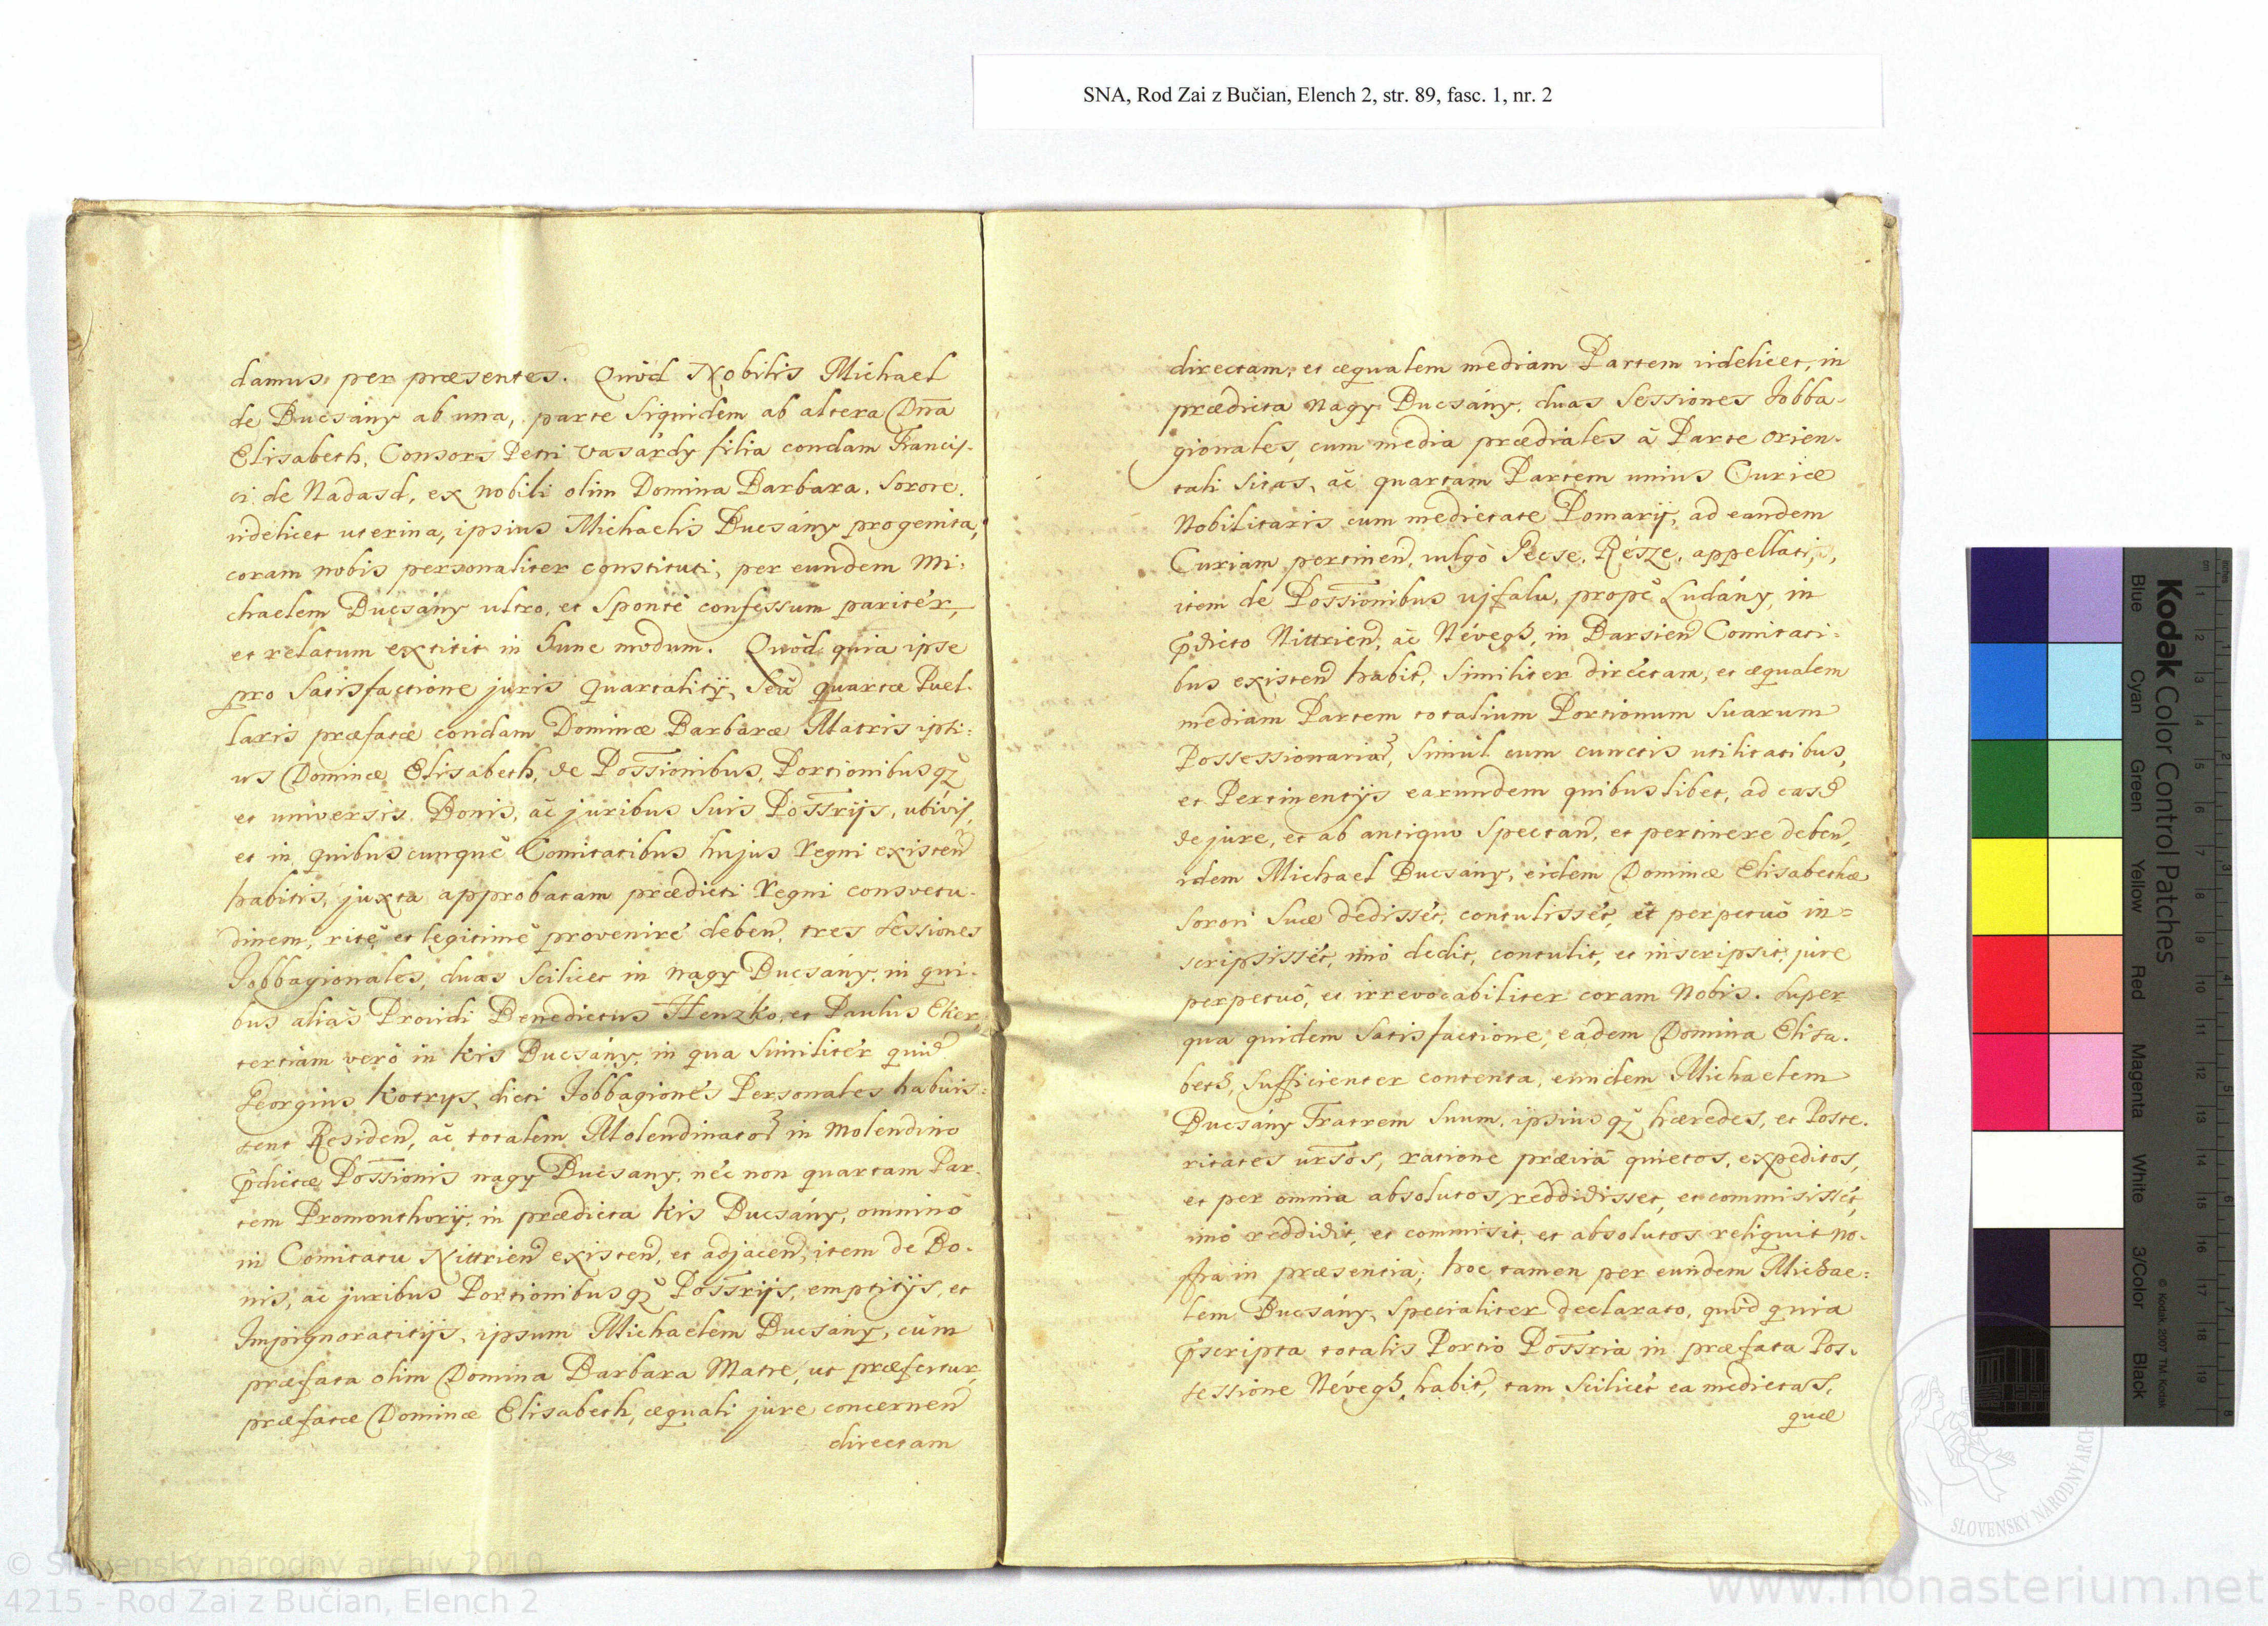 SNA, Rod Zai z Bučian, Elench 2, str. 89, fasc. 1, nr. 2
damus per præsentes. Quòd Nobilis Michael
de Bucsány ab una, parte siquidem ab altera Dn̄a
Elisabeth, Consors Petri Vasárdy filia condam Francis-
ci de Nadasd, ex nobili olim Domina Barbara, Sorore.
videlicet uterina, ipsius Michaelis Bucsány progenita,
coram nobis personaliter constituti, per eundem Mi-
chaelem Bucsány ultro, et Spontè confessum paritèr,
et relatum extitit in hunc modum. Quòd quia ipse
pro Satisfactione juris Quartalitij, Seù quartæ Puel-
laris præfatæ condam Dominæ Barbaræ Matris ipsi-
us Dominæ Elisabeth, de Possionibus, Portionibusq3
et universis Bonis, ac juribus Suis Possrijs, ubivis,
et in quibuscunquè Comitatibus hujus Regni existen̄
habitis, juxta approbatam prædicti Regni consvetu-
dinem, ritè, et legitimè provenirè deben̄, tres Sessiones
Jobbagionales, duas Scilicet in Nagy Bucsány, in qui-
bus aliàs Providi Benedictus Henzko, et Paulus Eker,
tertiam verò in Kis Bucsány, in qua Similitèr quid̄
Georgius Kotrys, dicti Jobbagionès Personales habuis-
sent Residen̄, ac totalem Molendinator̄ in Molendino
p̄dictæ Possionis nagy Bucsany, nèc non quartam Par-
tem Promonthorij, in prædicta Kis Bucsány, omninò
in Comitatu Nittrien̄ existen̄, et adjacen̄, item de Bo-
nis, ac juribus Portionibusq3 Possrijs, emptitijs, et
Impignoratitijs, ipsum Michaelem Bucsány, cùm
præfata olim Domina Barbara Matre, ut præfertur,
præfatæ Dominæ Elisabeth, æquali jure concernen̄
directam
directam, et æqualem mediam Partem videlicet, in
prædicta Nagy Bucsány, duas Sessiones Jobba-
gionales, cum media prædiales à Parte orien-
tali Sitas, ac quartam Partem unius Curiæ
Nobilitaris cum medietate Pomarij, ad eandem
Curiam pertinen̄, vulgò Pecse, Része, appellati,
item de Possionibus ujfalu, propè Ludány, in
p̄dicto Nittrien̄, ac Névegh, in Barsien̄ Comitati-
bus existen̄ habit̄, Similiter dirèctam, et æqualem
mediam Partem totalium Portionum Suarum
Possessionariar̄, Simùl cum cunctis utilitatibus,
et Pertinentijs earundem quibuslibet, ad easd̄
de jure, et ab antiquo Spectan̄, et pertinere deben̄,
idem Michael Bucsány, eidem Dominæ Elisabethæ
Sorori Suæ dedissèt, contulissèt, èt perpetuò in-
scripsissèt, imò dedit, contulit, et inscripsit, jure
perpetuò, et irrevocabiliter coram Nobis. Super
qua quidem Satisfactione, eadem Domina Elisa-
beth, Sufficienter contenta, eundem Michaelem
Bucsány Fratrem Suum, ipsiusq3 hæredes, et Poste-
ritates ur̄sos, ratione præviâ quietos, expeditos,
et per omnia absolutos reddidisset, et commisissèt,
imò reddidit, et commisit, et absolutos reliquit no-
stra in præsentia; hoc tamen per eundem Michae-
lem Bucsány, Specialiter declarato, quòd quia
p̄scripta totalis Portio Possria in præfata Pos-
sessione Névegh, habit̄, tam Scilicèt ea medietas,
quæ
Kodak Color Control Patches
Blue
Cyan
Green
Yellow
Red
Magenta
White
3/Color
Black
© Kodak, 2007 TM: Kodak
SLOVENSKÝ NÁRODNÝ ARCH
© Slovenský národný archív 2010
4215 - Rod Zai z Bučian, Elench 2
www.monasterium.net